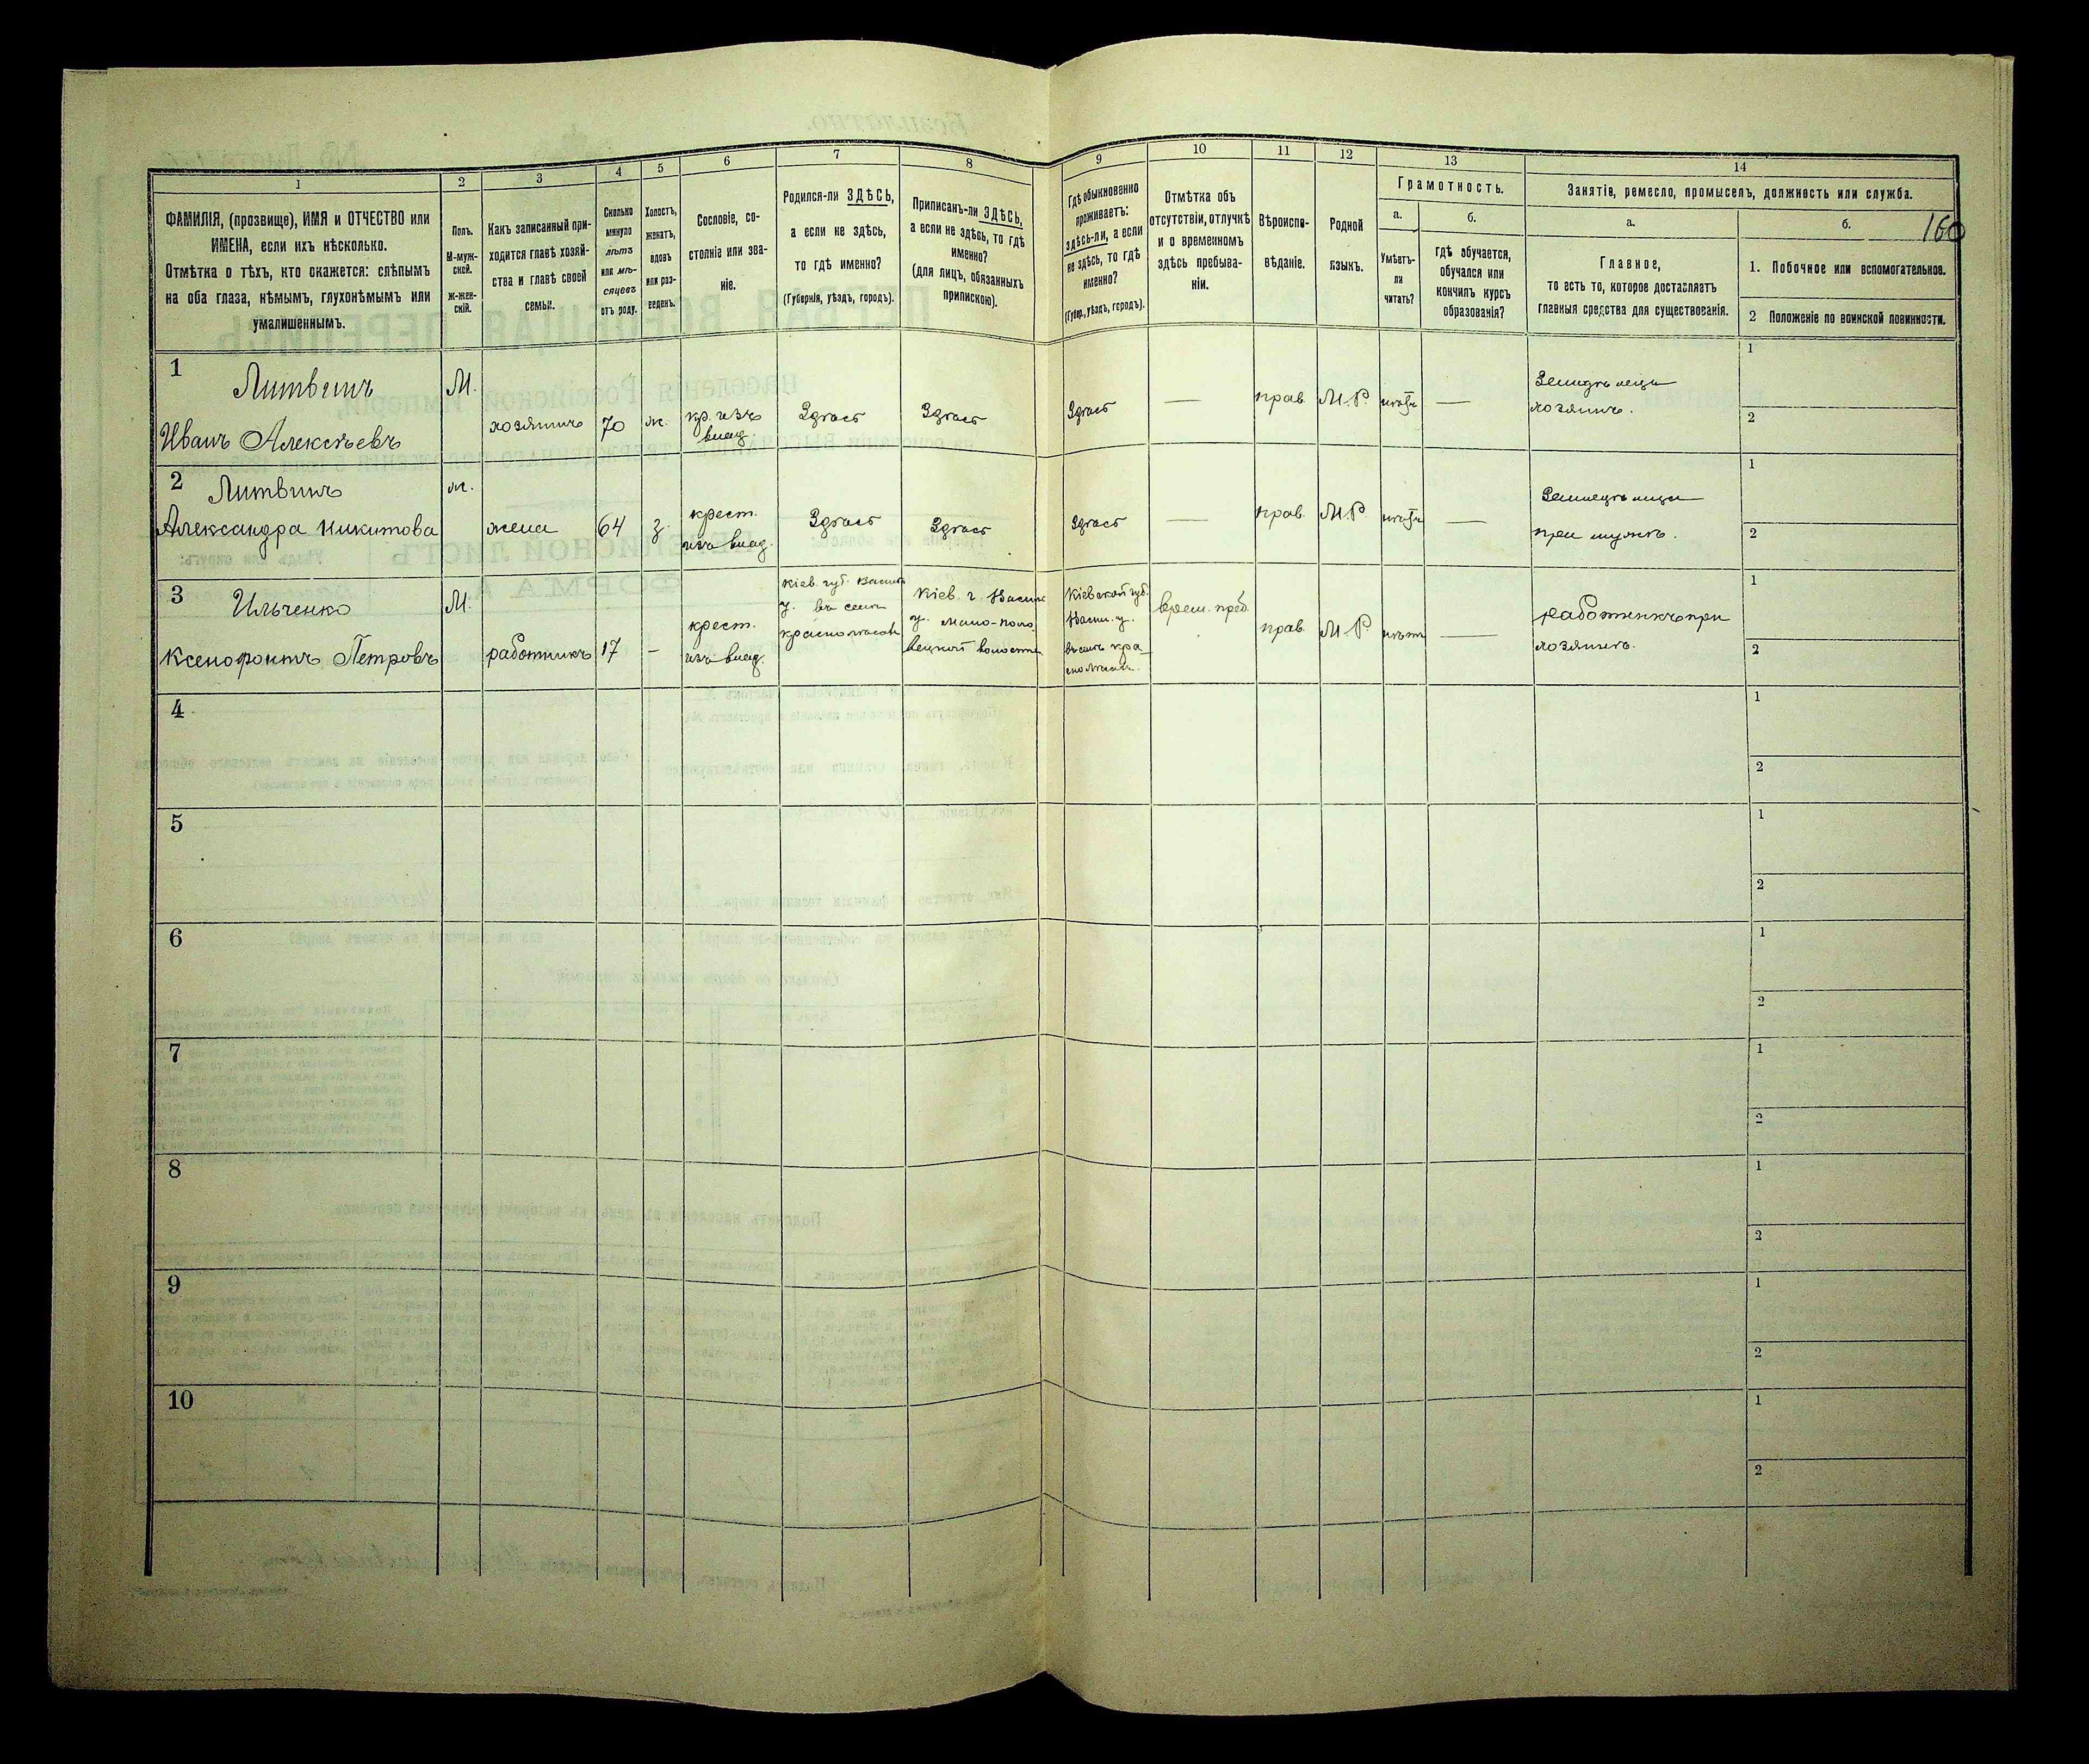 160
1
2
3
4
5
6
7
8
9
10
11
12
13
14
ФАМИЛІЯ, (прозвище), ИМЯ и ОТЧЕСТВО или
ИМЕНА, если ихъ нѣсколько.
Отмѣтка о тѣхъ, кто окажется: слѣпымъ
на оба глаза, нѣмымъ, глухонѣмымъ или
умалишеннымъ.
Полъ.
М-муж-
ской.
Ж-жен-
скій.
Какъ записанный при-
ходится главѣ хозяй-
ства и главѣ своей
семьи.
Сколько
минуло
лѣтъ
или мѣ-
сяцевъ
отъ роду.
Холостъ,
женатъ,
вдовъ
или раз-
веденъ.
Сословіе, со-
стояніе или зва-
ніе.
Родился-ли ЗДѢСЬ,
а если не здѣсь,
то гдѣ именно?
(Губернія, уѣздъ, городъ).
Приписанъ-ли ЗДѢСЬ,
а если не здѣсь, то гдѣ
именно?
(для лицъ, обязанныхъ
припискою).
Гдѣ обыкновенно
проживаетъ:
здѣсь-ли, а если
не здѣсь, то гдѣ
именно?
(Губер., уѣздъ, городъ).
Отмѣтка объ
отсутствіи, отлучкѣ
и о временномъ
здѣсь пребыва-
ніи.
Вѣроиспо-
вѣданіе.
Родной
языкъ.
Грамотность.
а.
Умѣетъ-
ли
читать?
б.
гдѣ обучается,
обучался или
кончилъ курсъ
образованія?
Занятіе, ремесло, промыселъ, должность или служба.
а.
Главное,
то есть то, которое доставляетъ
главныя средства для существованія.
б.
1. Побочное или вспомогательное.
2 Положеніе по воинской повинности.
1
Литвинъ
Иванъ Алексѣевъ
М.
хозяинъ
70
ж.
кр. изъ
влад.
Здѣсь
Здѣсь
Здѣсь
—
прав.
М.Р.
нѣтъ
—
хозяинъ.
1
2
2
Литвинъ
Александра Никитова
ж.
жена
64
з.
крест.
изъ влад.
Здѣсь
Здѣсь
Здѣсь
—
прав.
М.Р.
нѣтъ
—
при мужѣ.
1
2
3
Ильченко
Ксенофонтъ Петровъ
М.
работникъ
17
—
крест.
изъ влад.
Кіев. губ. Васил.
у. въ селѣ
Кіев. г. Васил.
у. Мало-поло-
вецкой волости
Кіевской губ.
Васил. у.
врем. преб.
прав.
М.Р.
нѣтъ
—
работникъ при
хозяинѣ.
1
2
4
1
2
5
1
2
6
1
2
7
1
2
8
1
2
9
1
2
10
1
2